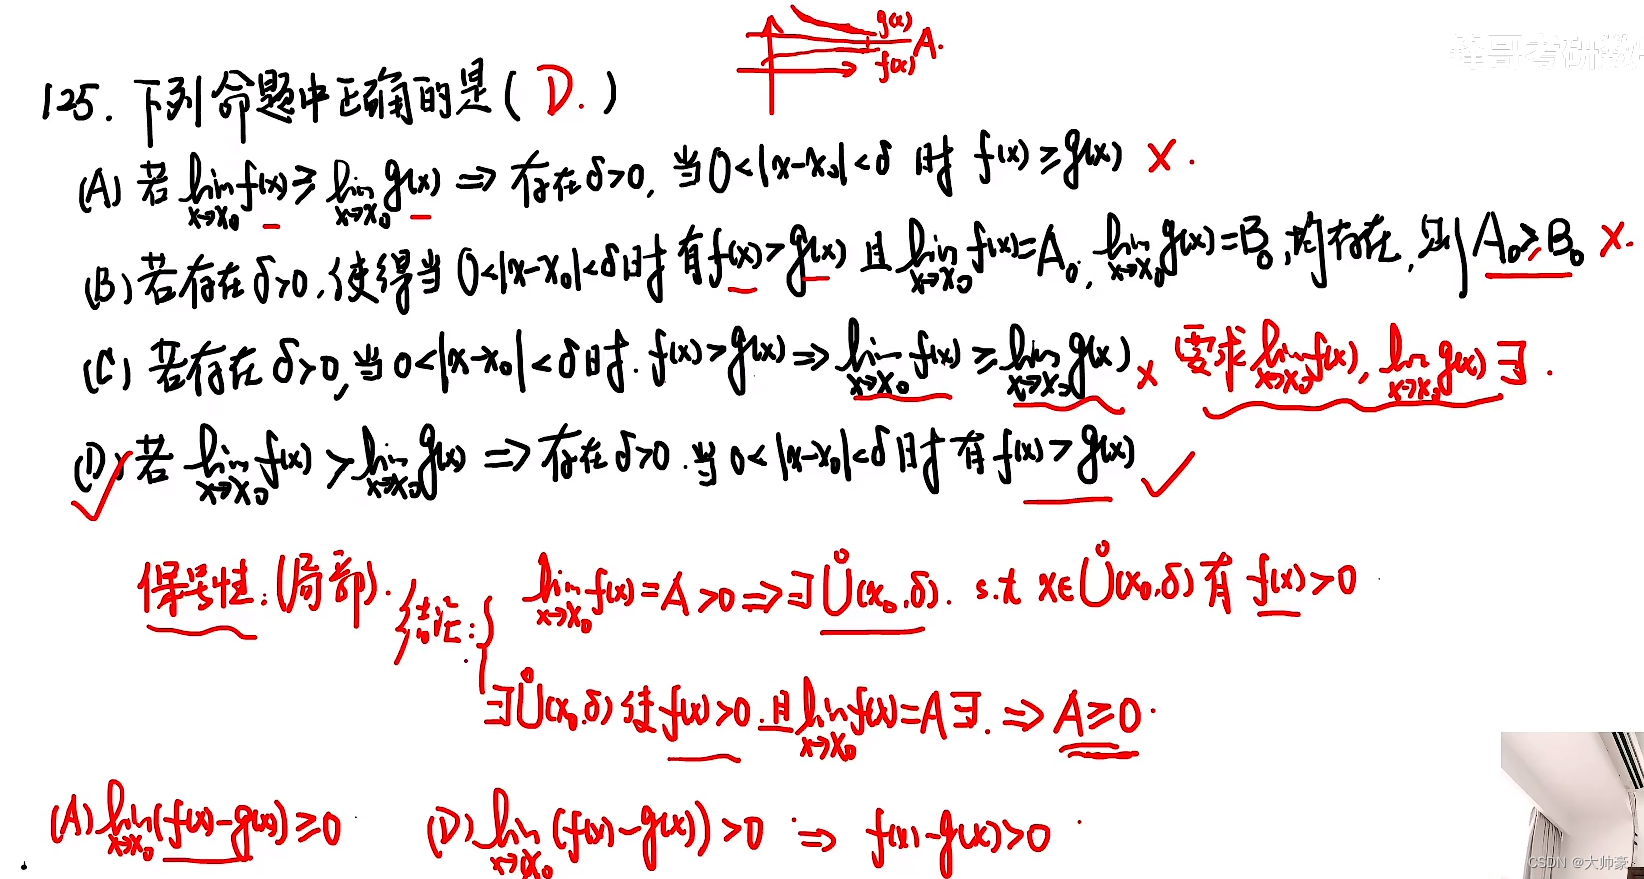 g(x)
A.
f(x)
峰哥考研数
125. 下列命题中正确的是( D. )
(A) 若 lim x→x₀ f(x) ≥ lim x→x₀ g(x) ⇒ 存在δ>0, 当0<|x-x₀|<δ 时 f(x) ≥ g(x) ×.
(B) 若存在δ>0, 使得当 0<|x-x₀|<δ时有f(x)>g(x) 且 lim x→x₀ f(x)=A₀, lim x→x₀ g(x)=B₀, 均存在, 则 A₀≥B₀ ×.
(C) 若存在δ>0, 当 0<|x-x₀|<δ时. f(x)>g(x) ⇒ lim x→x₀ f(x) ≥ lim x→x₀ g(x) × 要求 lim x→x₀ f(x), lim x→x₀ g(x) ∃.
(D) ✓ 若 lim x→x₀ f(x) > lim x→x₀ g(x) ⇒ 存在δ>0. 当 0<|x-x₀|<δ时有 f(x) > g(x) ✓
保号性: (局部). 结论: { lim x→x₀ f(x)=A>0 ⇒ ∃ Ů(x₀,δ). s.t x∈Ů(x₀,δ) 有 f(x)>0
∃Ů(x₀,δ) 使 f(x)>0. 且 lim x→x₀ f(x)=A ∃. ⇒ A≥0.
(A) lim x→x₀ (f(x)-g(x)) ≥0 (D) lim x→x₀ (f(x)-g(x)) >0 ⇒ f(x)-g(x)>0
CSDN @大帅豪